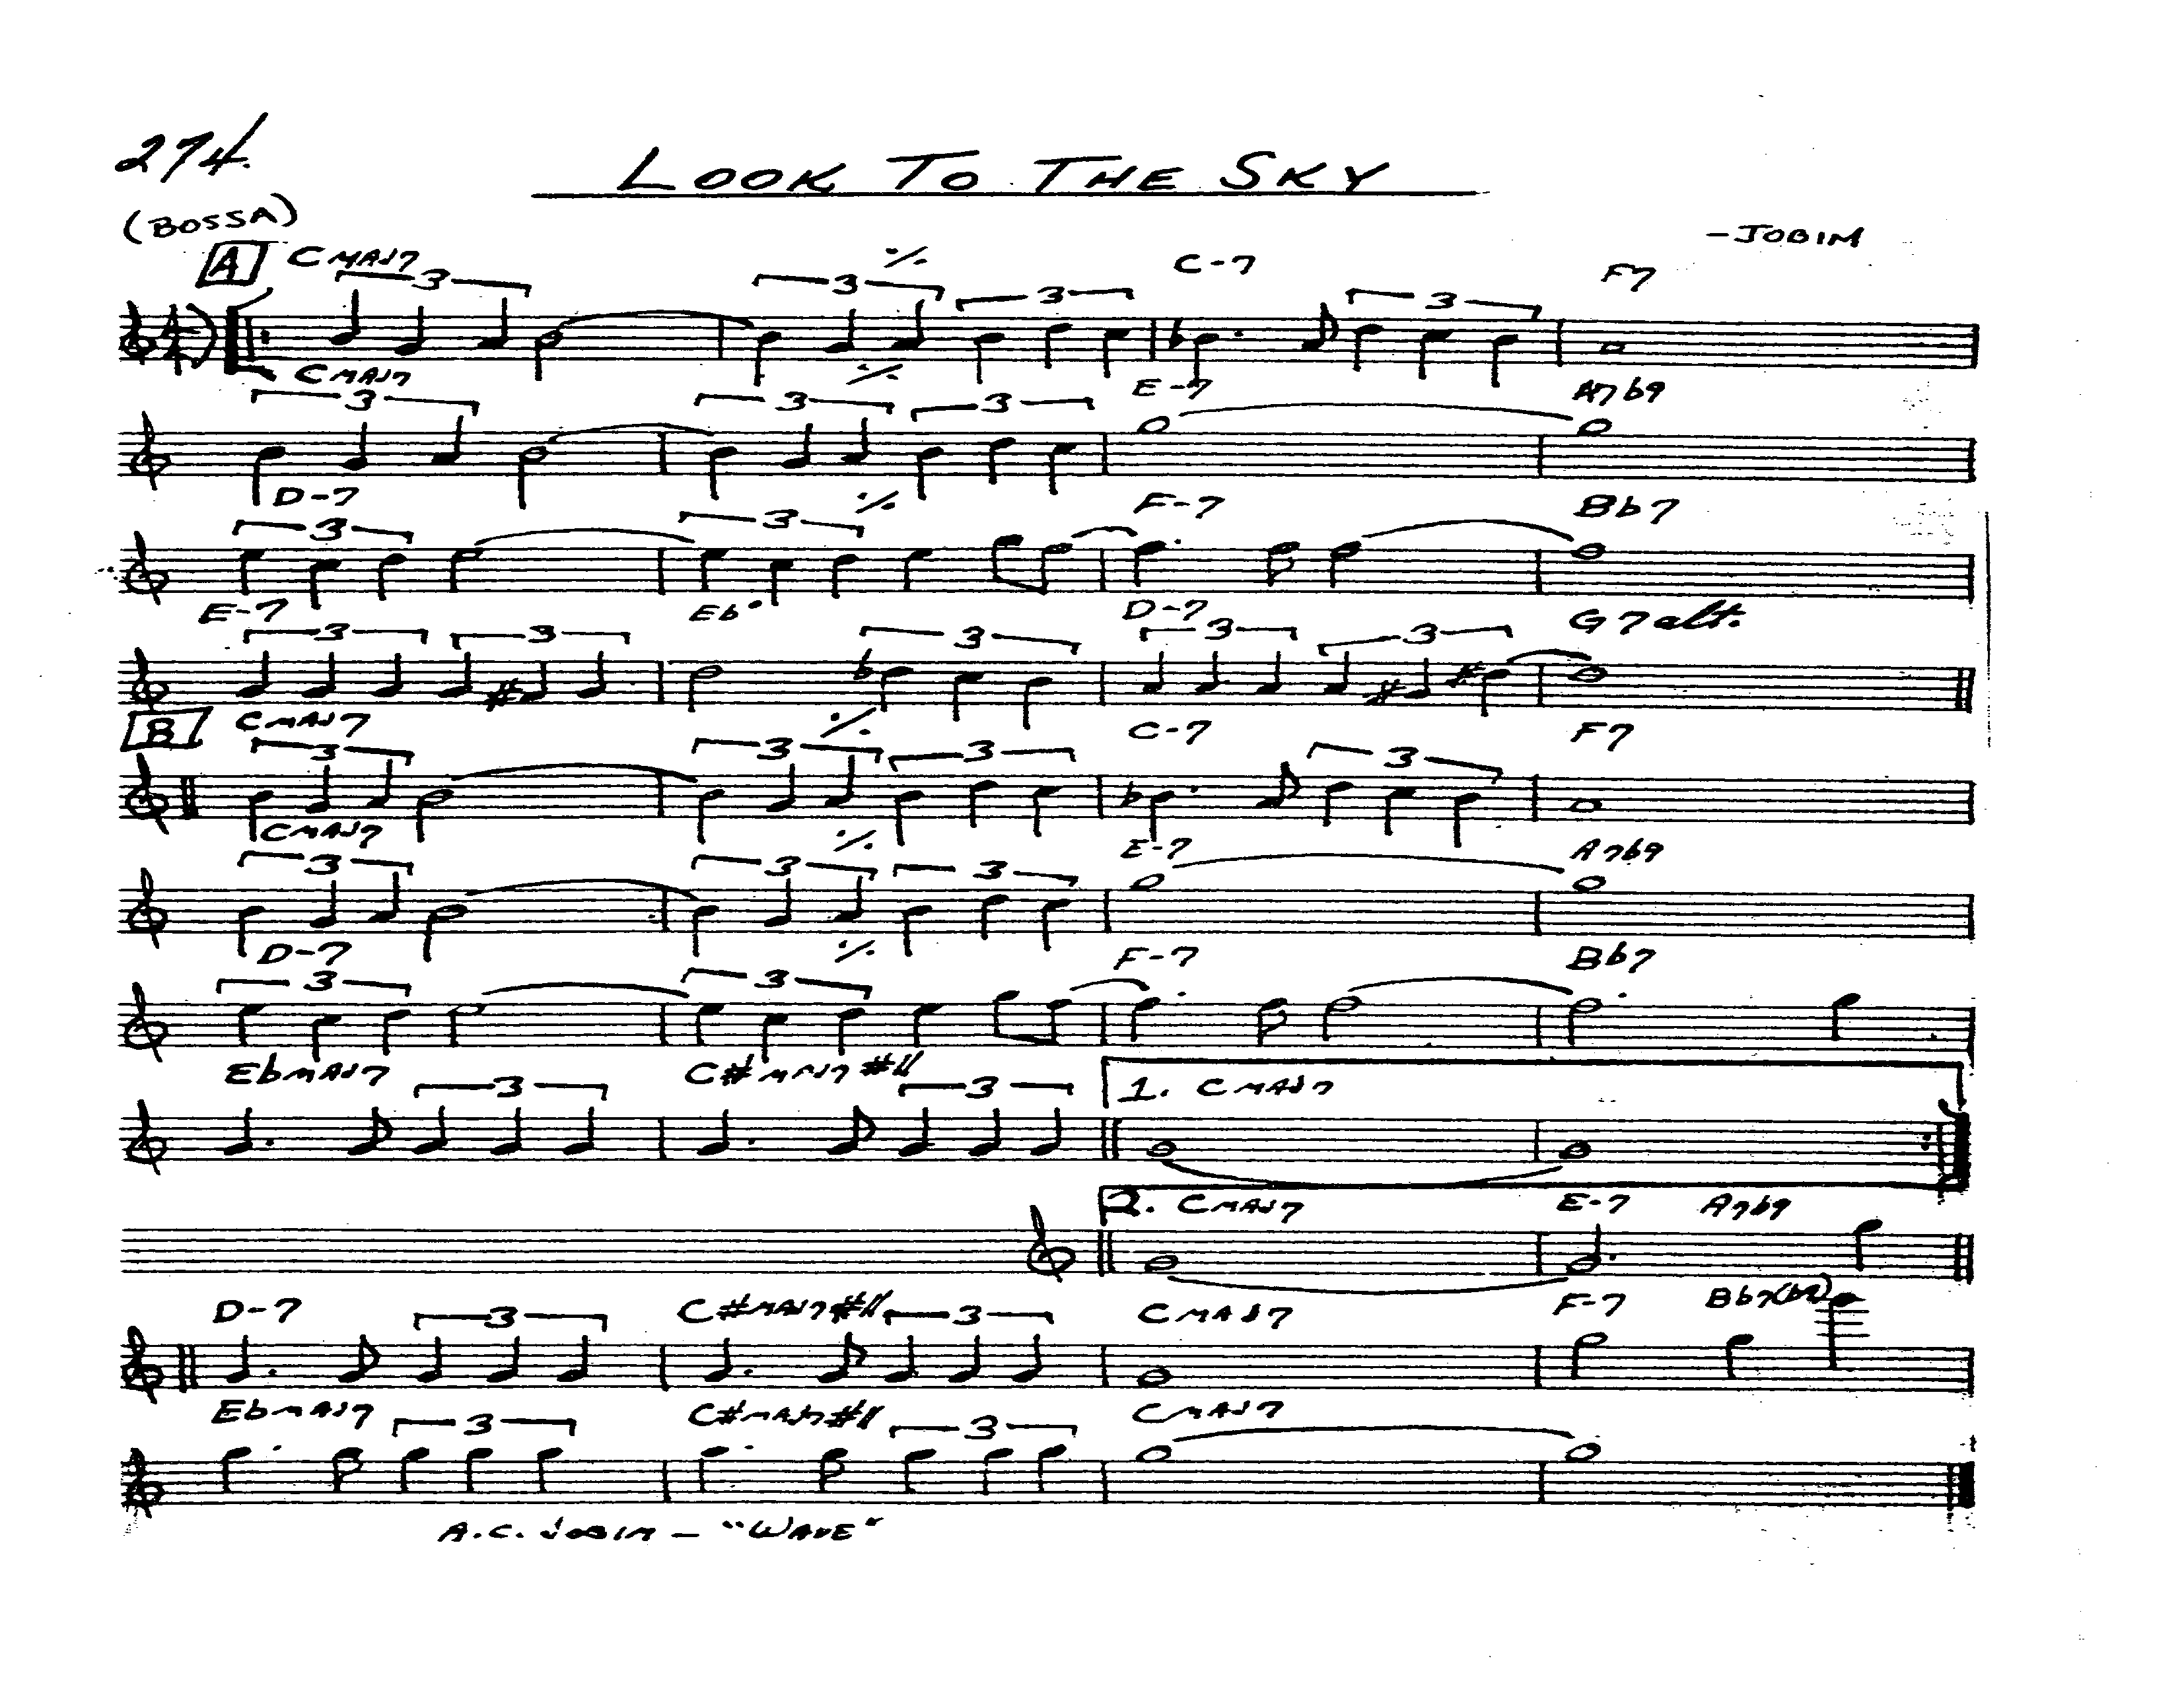 274.
LOOK TO THE SKY
(BOSSA)
-JOBIM
A CMAJ7 ٪ C-7 F7
3 3 3 3
CMAJ7 ٪ E-7 A7b9
3 3 3
D-7 ٪ F-7 Bb7
3 3
E-7 Eb° D-7 G7alt.
3 3 3 3 3
B CMAJ7 ٪ C-7 F7
3 3 3 3
CMAJ7 ٪ E-7 A7b9
3 3 3
D-7 ٪ F-7 Bb7
3 3
EbMAJ7 C#MAJ7#11 1. CMAJ7
3 3
2. CMAJ7 E-7 A7b9
D-7 C#MAJ7#11 CMAJ7 F-7 Bb7
3 3
EbMAJ7 C#MAJ7#11 CMAJ7
3 3
A.C. JOBIM - "WAVE"